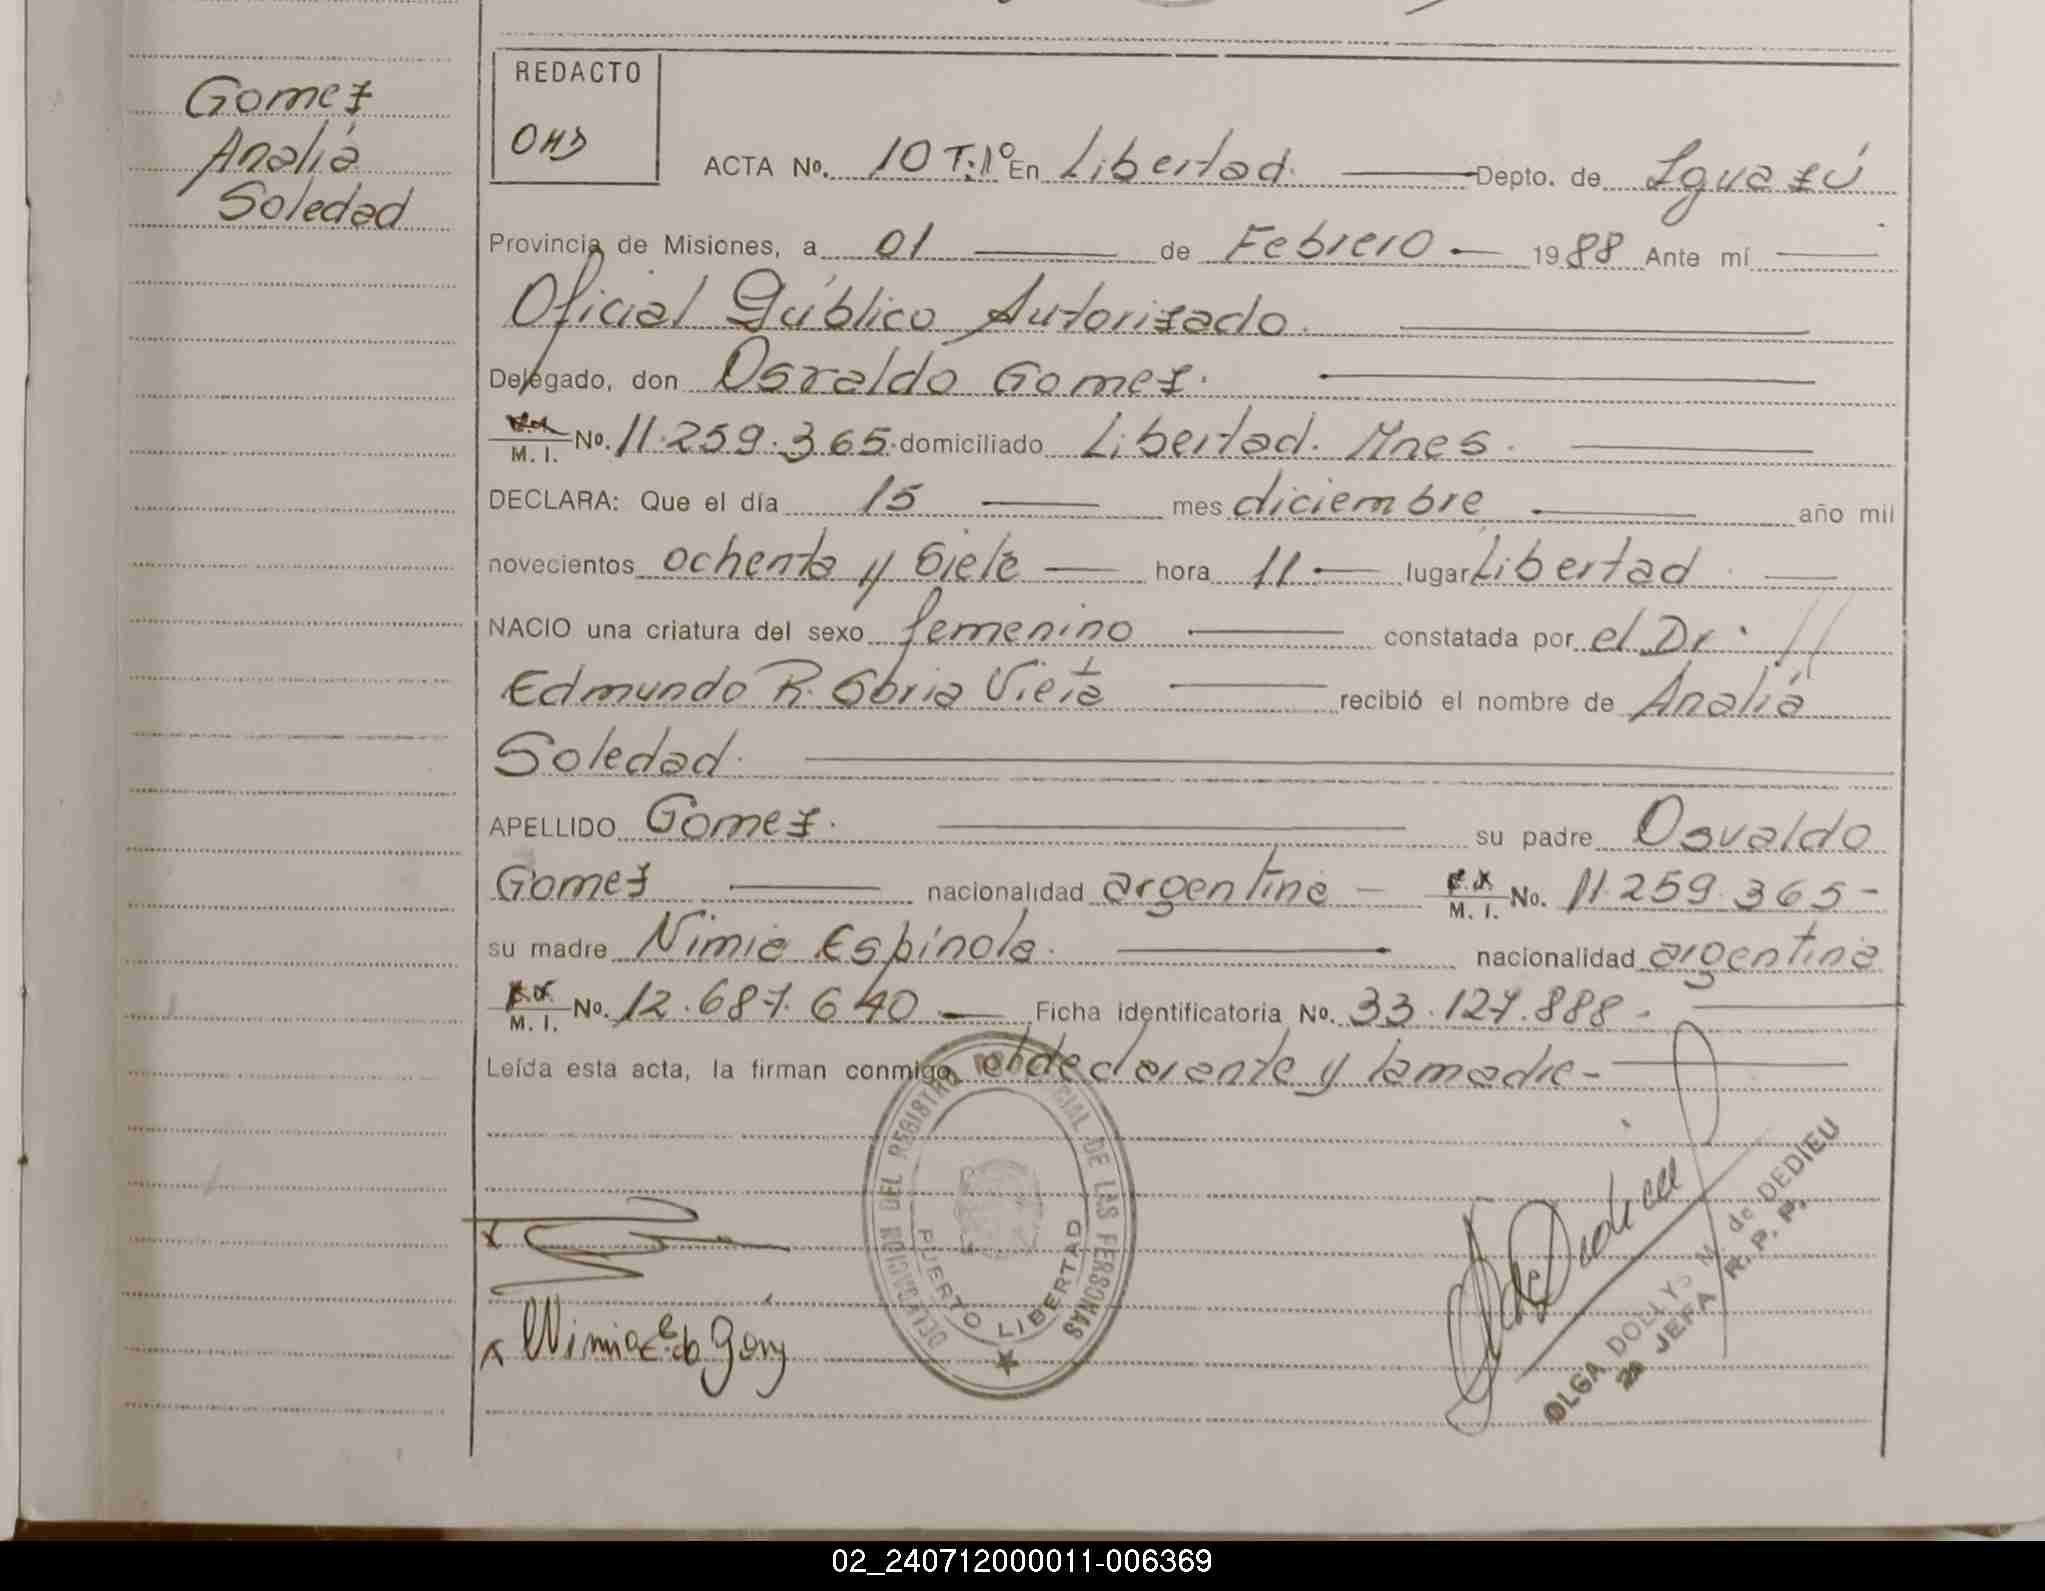 Gomez
Analiá
Soledad
REDACTO
OHD
ACTA No. 10 T:1º En Libertad. Depto. de Iguazú
Provincia de Misiones, a 01 de Febrero 1988 Ante mí
Oficial Público Autorizado.
Delegado, don Osvaldo Gomez.
M. I. No. 11.259.365. domiciliado Libertad. Mnes.
DECLARA: Que el día 15 mes diciembre año mil
novecientos ochenta y siete hora 11 lugar Libertad
NACIO una criatura del sexo femenino constatada por el Dr.
Edmundo R. Soria Vieta recibió el nombre de Analiá
Soledad.
APELLIDO Gomez. su padre Osvaldo
Gomez nacionalidad argentina M. I. No. 11.259.365-
su madre Nimia Espínola. nacionalidad argentina
M. I. No. 12.687.640 Ficha identificatoria No. 33.127.888-
Leída esta acta, la firman conmigo el declarante y la madre-
DELEGACION DEL REGISTRO PROVINCIAL DE LAS PERSONAS
PUERTO LIBERTAD
x
x Nimia E. de
OLGA DOLLYS N. de DEDIEU
JEFA R. P. P.
02_240712000011-006369